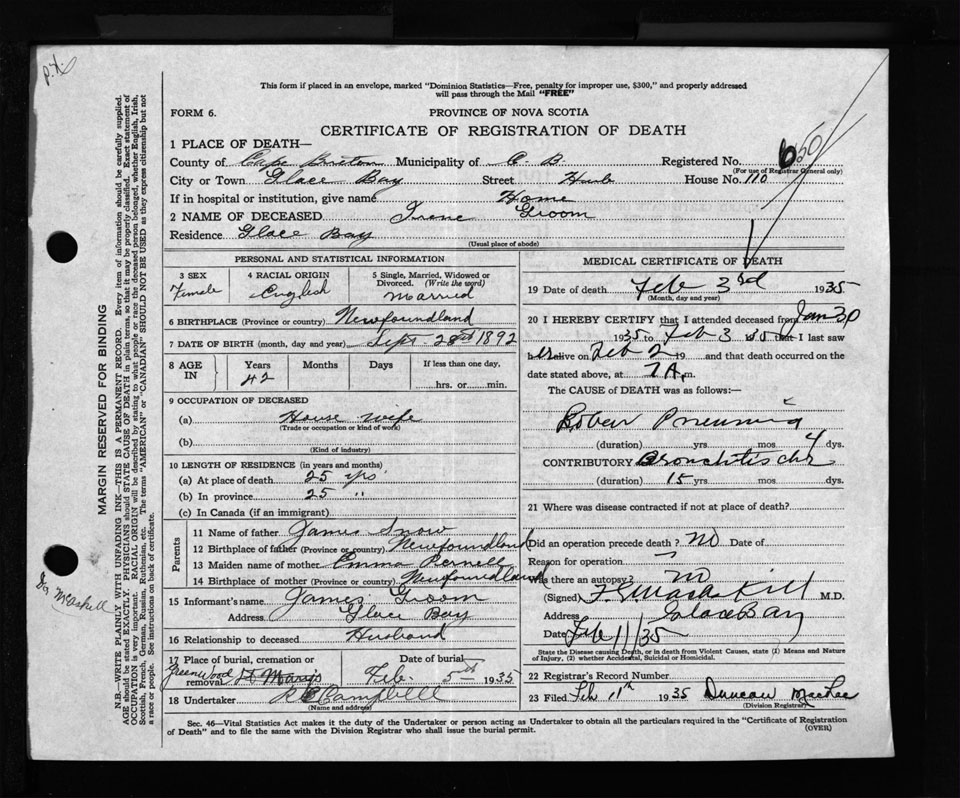 P.X.
This form if placed in an envelope, marked "Dominion Statistics—Free, penalty for improper use, $300," and properly addressed
will pass through the Mail "FREE"
FORM 6.
PROVINCE OF NOVA SCOTIA
CERTIFICATE OF REGISTRATION OF DEATH
1 PLACE OF DEATH—
County of Cape Breton Municipality of C B. Registered No. 650
(For use of Registrar General only)
City or Town Glace Bay Street Hub House No. 110
If in hospital or institution, give name Home
2 NAME OF DECEASED Irene Groom
Residence Glace Bay
(Usual place of abode)
PERSONAL AND STATISTICAL INFORMATION
3 SEX 4 RACIAL ORIGIN 5 Single, Married, Widowed or
Divorced. (Write the word)
Female English Married
6 BIRTHPLACE (Province or country) Newfoundland
7 DATE OF BIRTH (month, day and year) Sept. 28 1892
8 AGE IN Years Months Days If less than one day,
42 hrs. or min.
9 OCCUPATION OF DECEASED
(a) House wife
(Trade or occupation or kind of work)
(b)
(Kind of industry)
10 LENGTH OF RESIDENCE (in years and months)
(a) At place of death 25 yrs
(b) In province 25 "
(c) In Canada (if an immigrant)
Parents
11 Name of father James Snow
12 Birthplace of father (Province or country) Newfoundland
13 Maiden name of mother Emma
14 Birthplace of mother (Province or country) Newfoundland
15 Informant's name James Groom
Address Glace Bay
16 Relationship to deceased Husband
17 Place of burial, cremation or Date of burial
removal Greenwood St Marys Feb. 5 1935
18 Undertaker Campbell
(Name and address)
MEDICAL CERTIFICATE OF DEATH
19 Date of death Feb 3rd 1935
(Month, day and year)
20 I HEREBY CERTIFY that I attended deceased from Jan 30
1935 to Feb 3 1935 that I last saw
her alive on Feb 2 19 and that death occurred on the
date stated above, at 7 A. m.
The CAUSE of DEATH was as follows:
Lobar Pneumonia
(duration) yrs. mos 4 dys.
CONTRIBUTORY Bronchitis chr
(duration) 15 yrs mos dys.
21 Where was disease contracted if not at place of death?
Did an operation precede death? No Date of
Reason for operation
Was there an autopsy? no
(Signed) MacKill M.D.
Address Glace Bay
Date Feb 11/35
State the Disease causing Death, or in death from Violent Causes, state (1) Means and Nature
of Injury, (2) whether Accidental, Suicidal or Homicidal.
22 Registered Record Number
23 Filed Feb. 11th 1935 Duncan MacRae
(Division Registrar)
Sec. 46—Vital Statistics Act makes it the duty of the Undertaker or person acting as Undertaker to obtain all the particulars required in the "Certificate of Registration
of Death" and to file the same with the Division Registrar who shall issue the burial permit.
(OVER)
MARGIN RESERVED FOR BINDING
N.B.—WRITE PLAINLY WITH UNFADING INK—THIS IS A PERMANENT RECORD. Every item of information should be carefully supplied.
AGE should be stated EXACTLY. PHYSICIANS should STATE CAUSE OF DEATH in plain terms, so that it may be properly classified. Exact statement of
OCCUPATION is very important. RACIAL ORIGIN will be described by stating to what people or race the deceased person belonged, whether English, Irish,
Scottish, French, German, Russian, Ruthenian, etc. The terms "AMERICAN" or "CANADIAN" SHOULD NOT BE USED as they express citizenship but not
a race or people. See instructions on back of certificate.